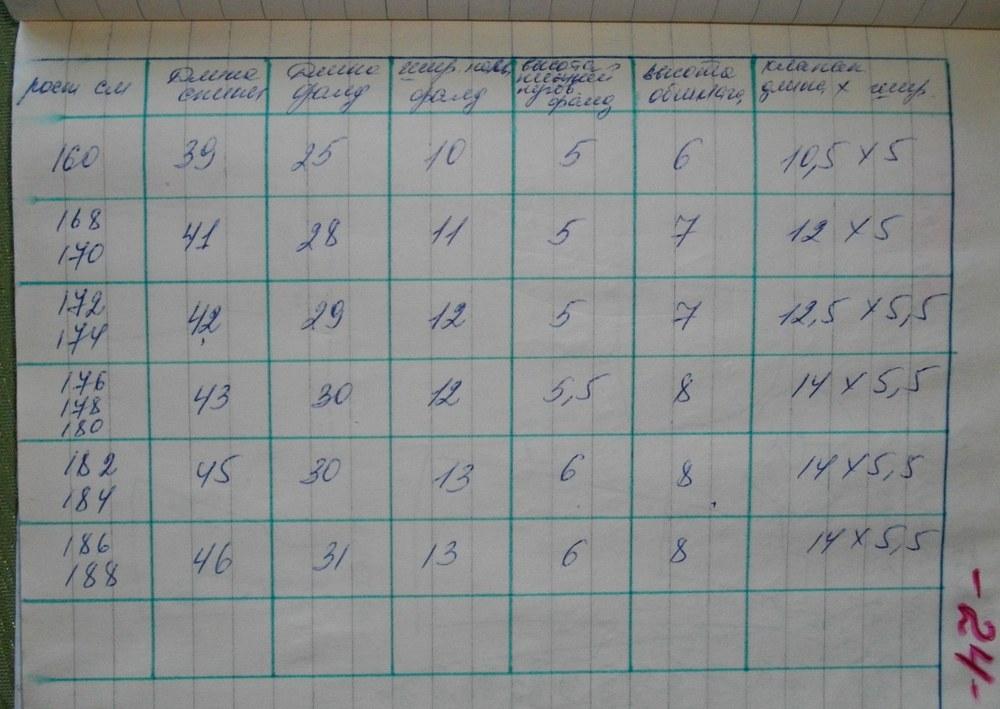 рост см | Длина спины | Длина фалд | шир. фалд | высота нижней пугов. фалд | высота обшлага | клапан длина х шир.
160 | 39 | 25 | 10 | 5 | 6 | 10,5 х 5
168 170 | 41 | 28 | 11 | 5 | 7 | 12 х 5
172 174 | 42 | 29 | 12 | 5 | 7 | 12,5 х 5,5
176 178 180 | 43 | 30 | 12 | 5,5 | 8 | 14 х 5,5
182 184 | 45 | 30 | 13 | 6 | 8 | 14 х 5,5
186 188 | 46 | 31 | 13 | 6 | 8 | 14 х 5,5
-24-